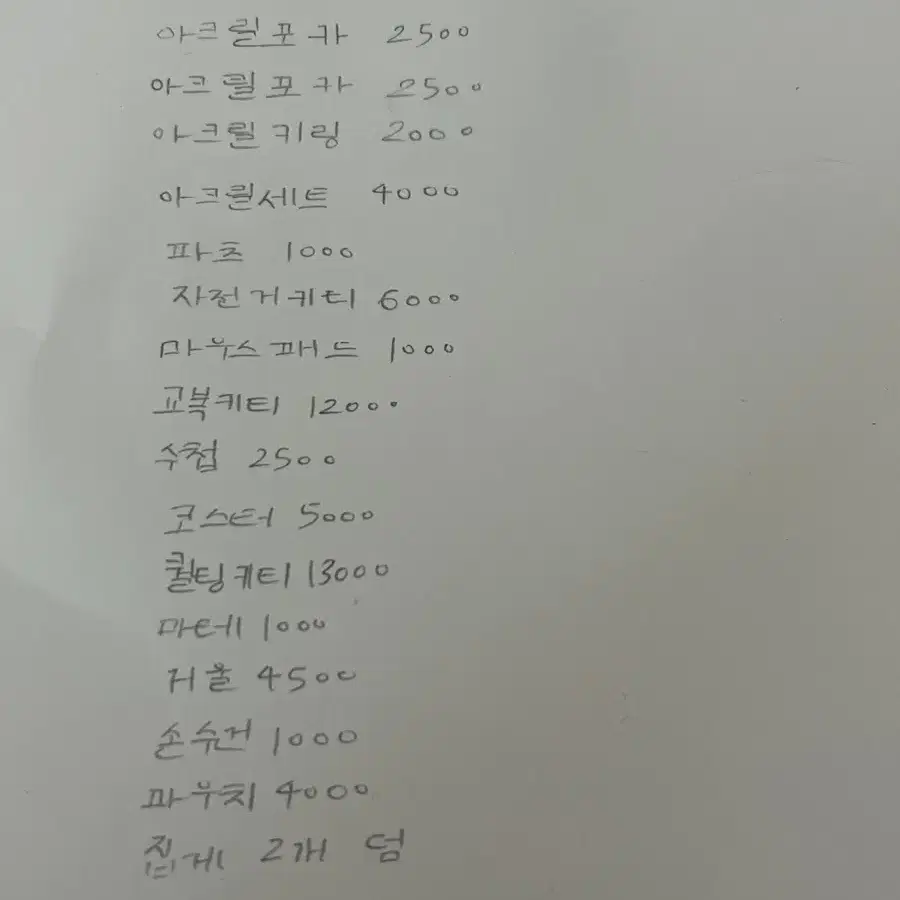 아크릴포카 2500
아크릴포카 2500
아크릴키링 2000
아크릴세트 4000
파츠 1000
자전거키티 6000
마우스패드 1000
교복키티 12000
수첩 2500
코스터 5000
퀼팅키티 13000
마테 1000
거울 4500
손수건 1000
파우치 4000
집게 2개 덤